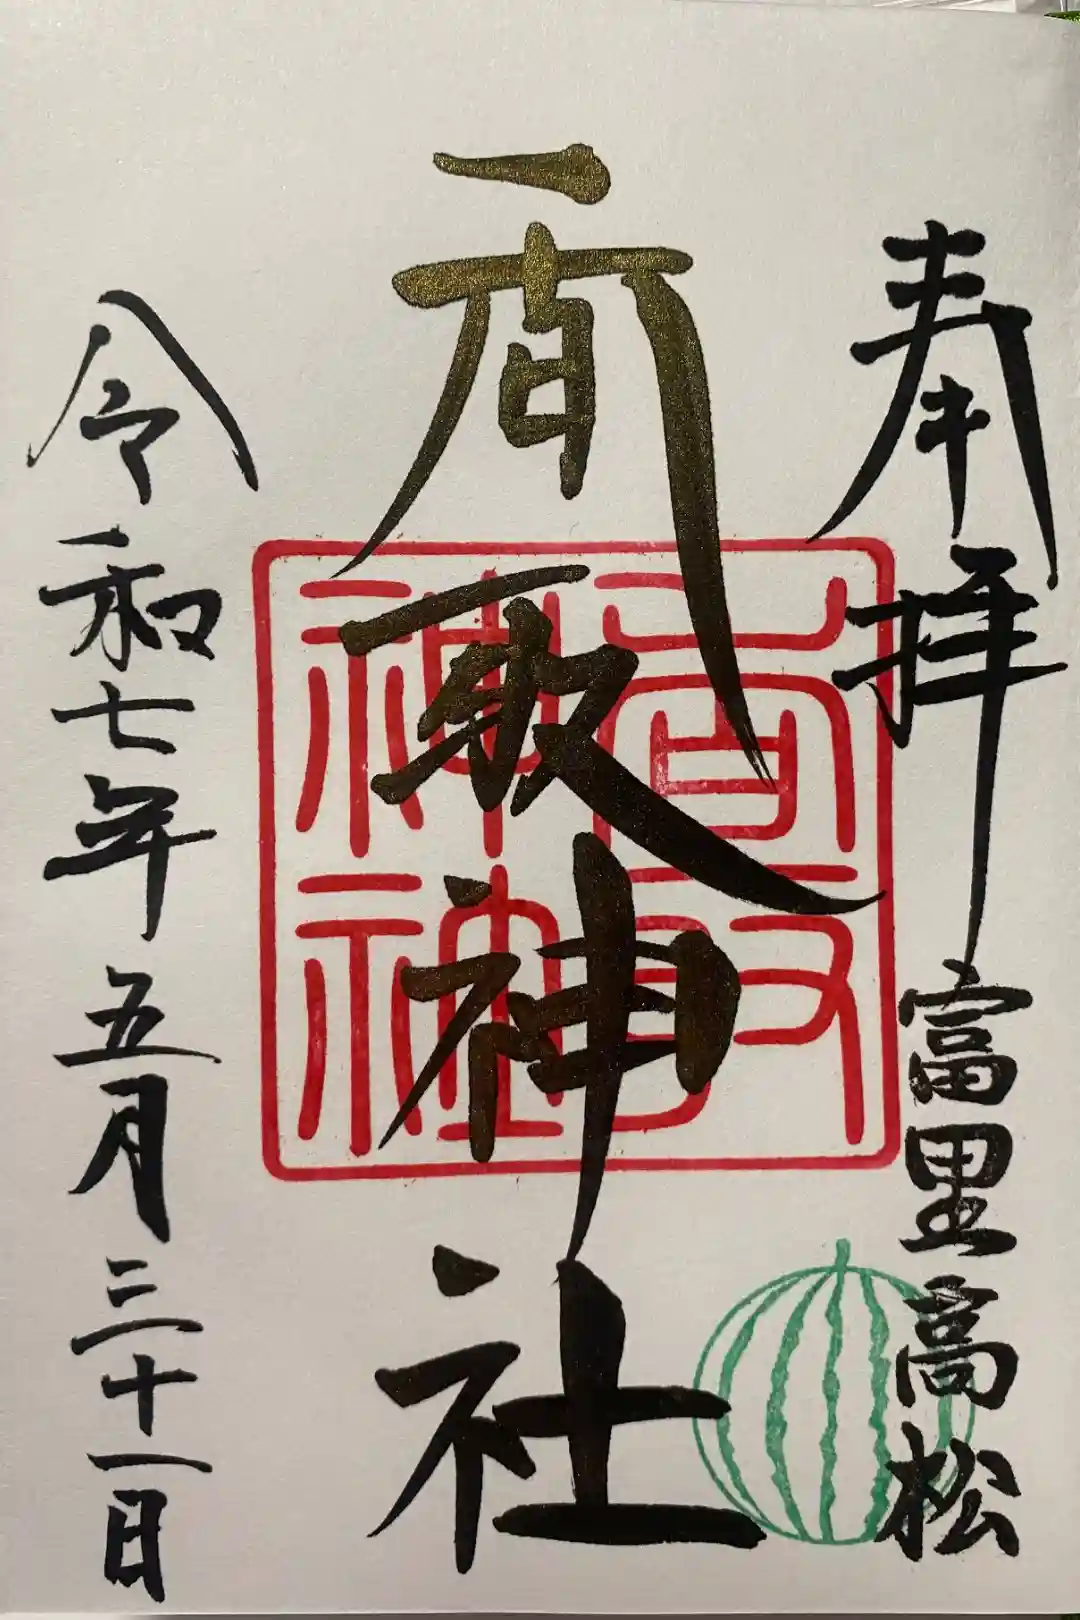 奉拝
富里高松
香取神社
香取神社
令和七年五月三十一日